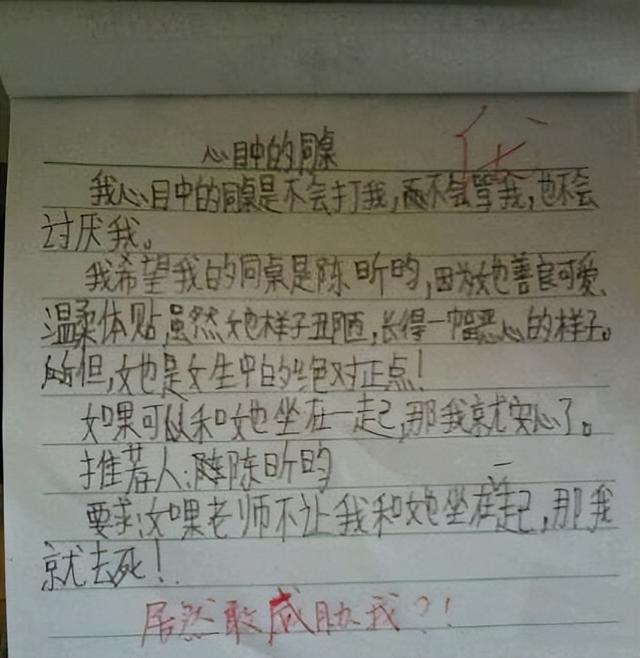 心目中的同桌
优
我心目中的同桌是不会打我,而不会骂我,也不会
讨厌我。
我希望我的同桌是陈昕昀,因为她善良可爱、
温柔体贴,虽然她样子丑陋,长得一幅恶心的样子。
但,她是女生中的绝对正点!
如果可以和她坐在一起,那我就安心了。
推荐人:陈昕昀
要求:如果老师不让我和她坐在一起,那我
就去死!
居然敢威胁我?!